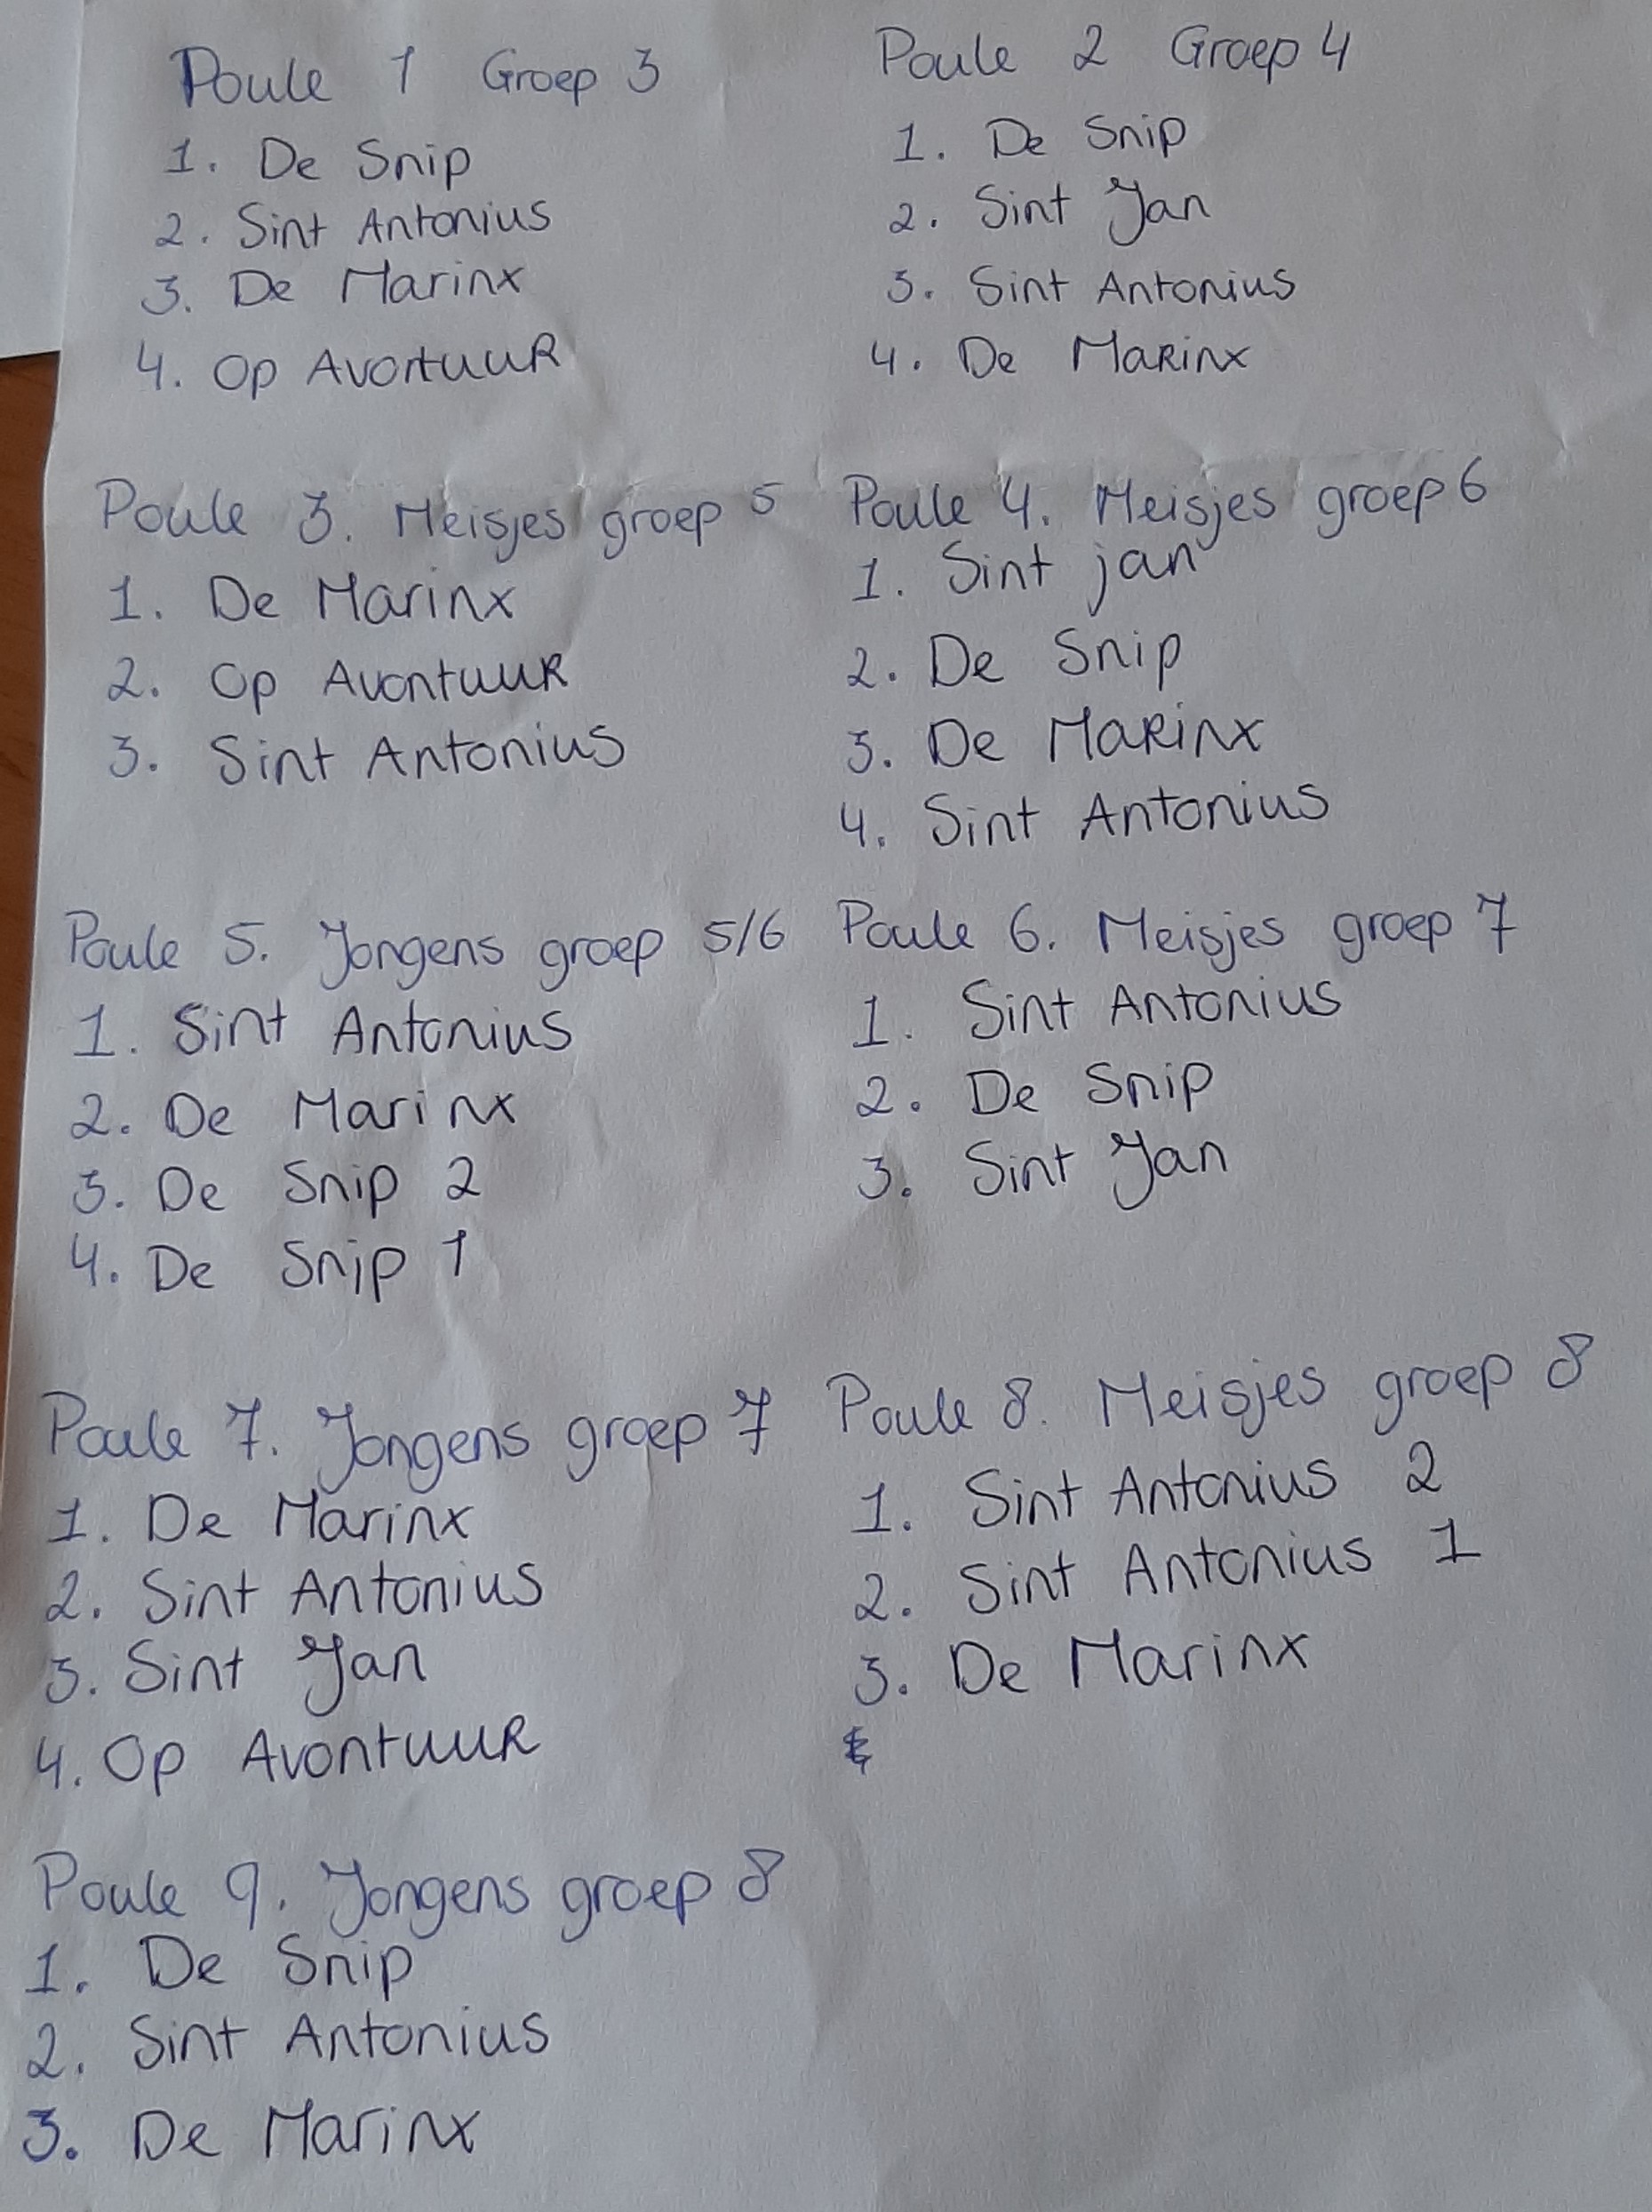 Poule 1 Groep 3
1. De Snip
2. Sint Antonius
3. De Marinx
4. Op Avontuur
Poule 2 Groep 4
1. De Snip
2. Sint Jan
3. Sint Antonius
4. De Marinx
Poule 3. Meisjes groep 5
1. De Marinx
2. Op Avontuur
3. Sint Antonius
Poule 4. Meisjes groep 6
1. Sint jan
2. De Snip
3. De Marinx
4. Sint Antonius
Poule 5. Jongens groep 5/6
1. Sint Antonius
2. De Marinx
3. De Snip 2
4. De Snip 1
Poule 6. Meisjes groep 7
1. Sint Antonius
2. De Snip
3. Sint Jan
Poule 7. Jongens groep 7
1. De Marinx
2. Sint Antonius
3. Sint Jan
4. Op Avontuur
Poule 8. Meisjes groep 8
1. Sint Antonius 2
2. Sint Antonius 1
3. De Marinx
Poule 9. Jongens groep 8
1. De Snip
2. Sint Antonius
3. De Marinx